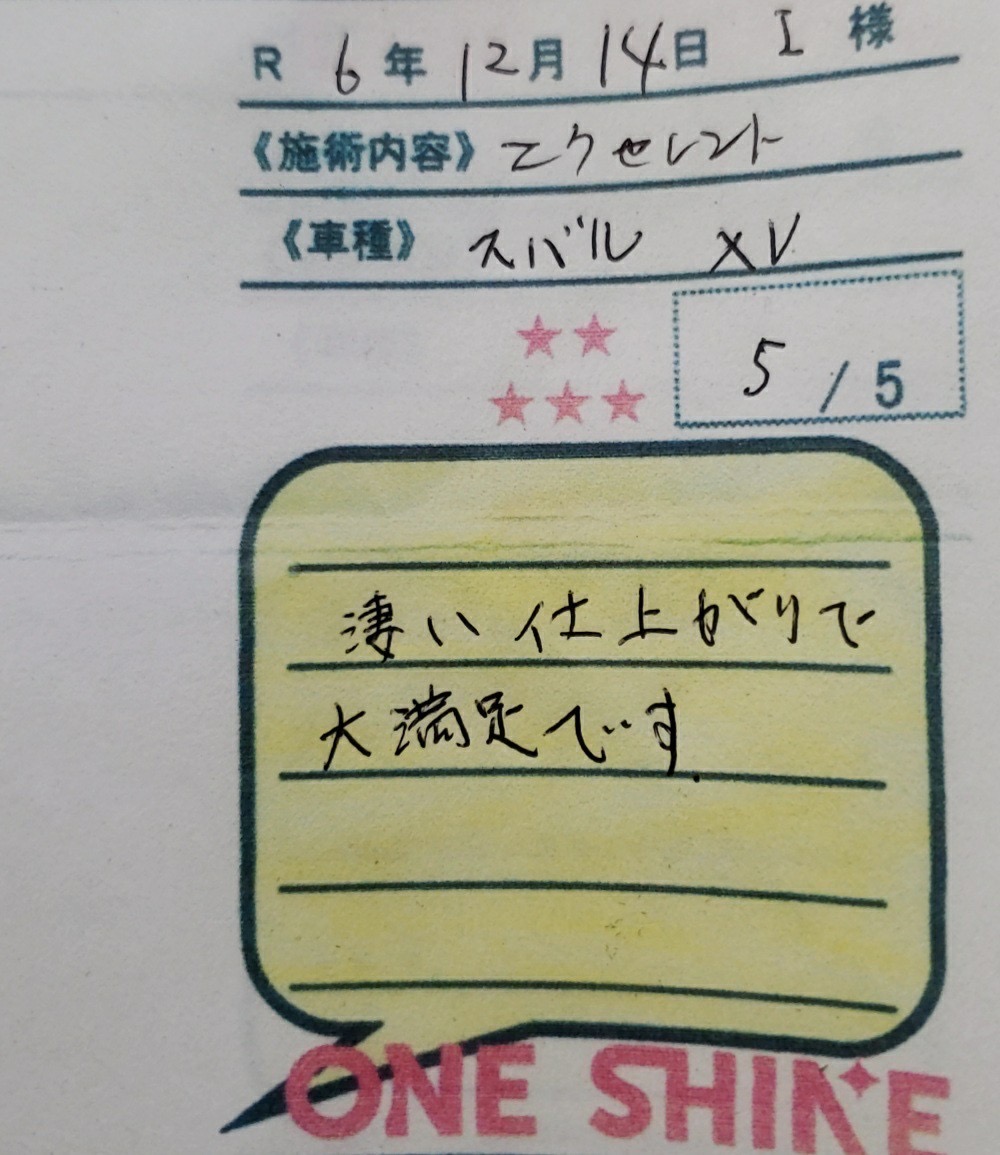 R 6年 12月 14日 I 様
《施術内容》 エクセレント
《車種》 スバル XV
★★
★★★
5 / 5
凄い仕上がりで
大満足です.
ONE SHINE